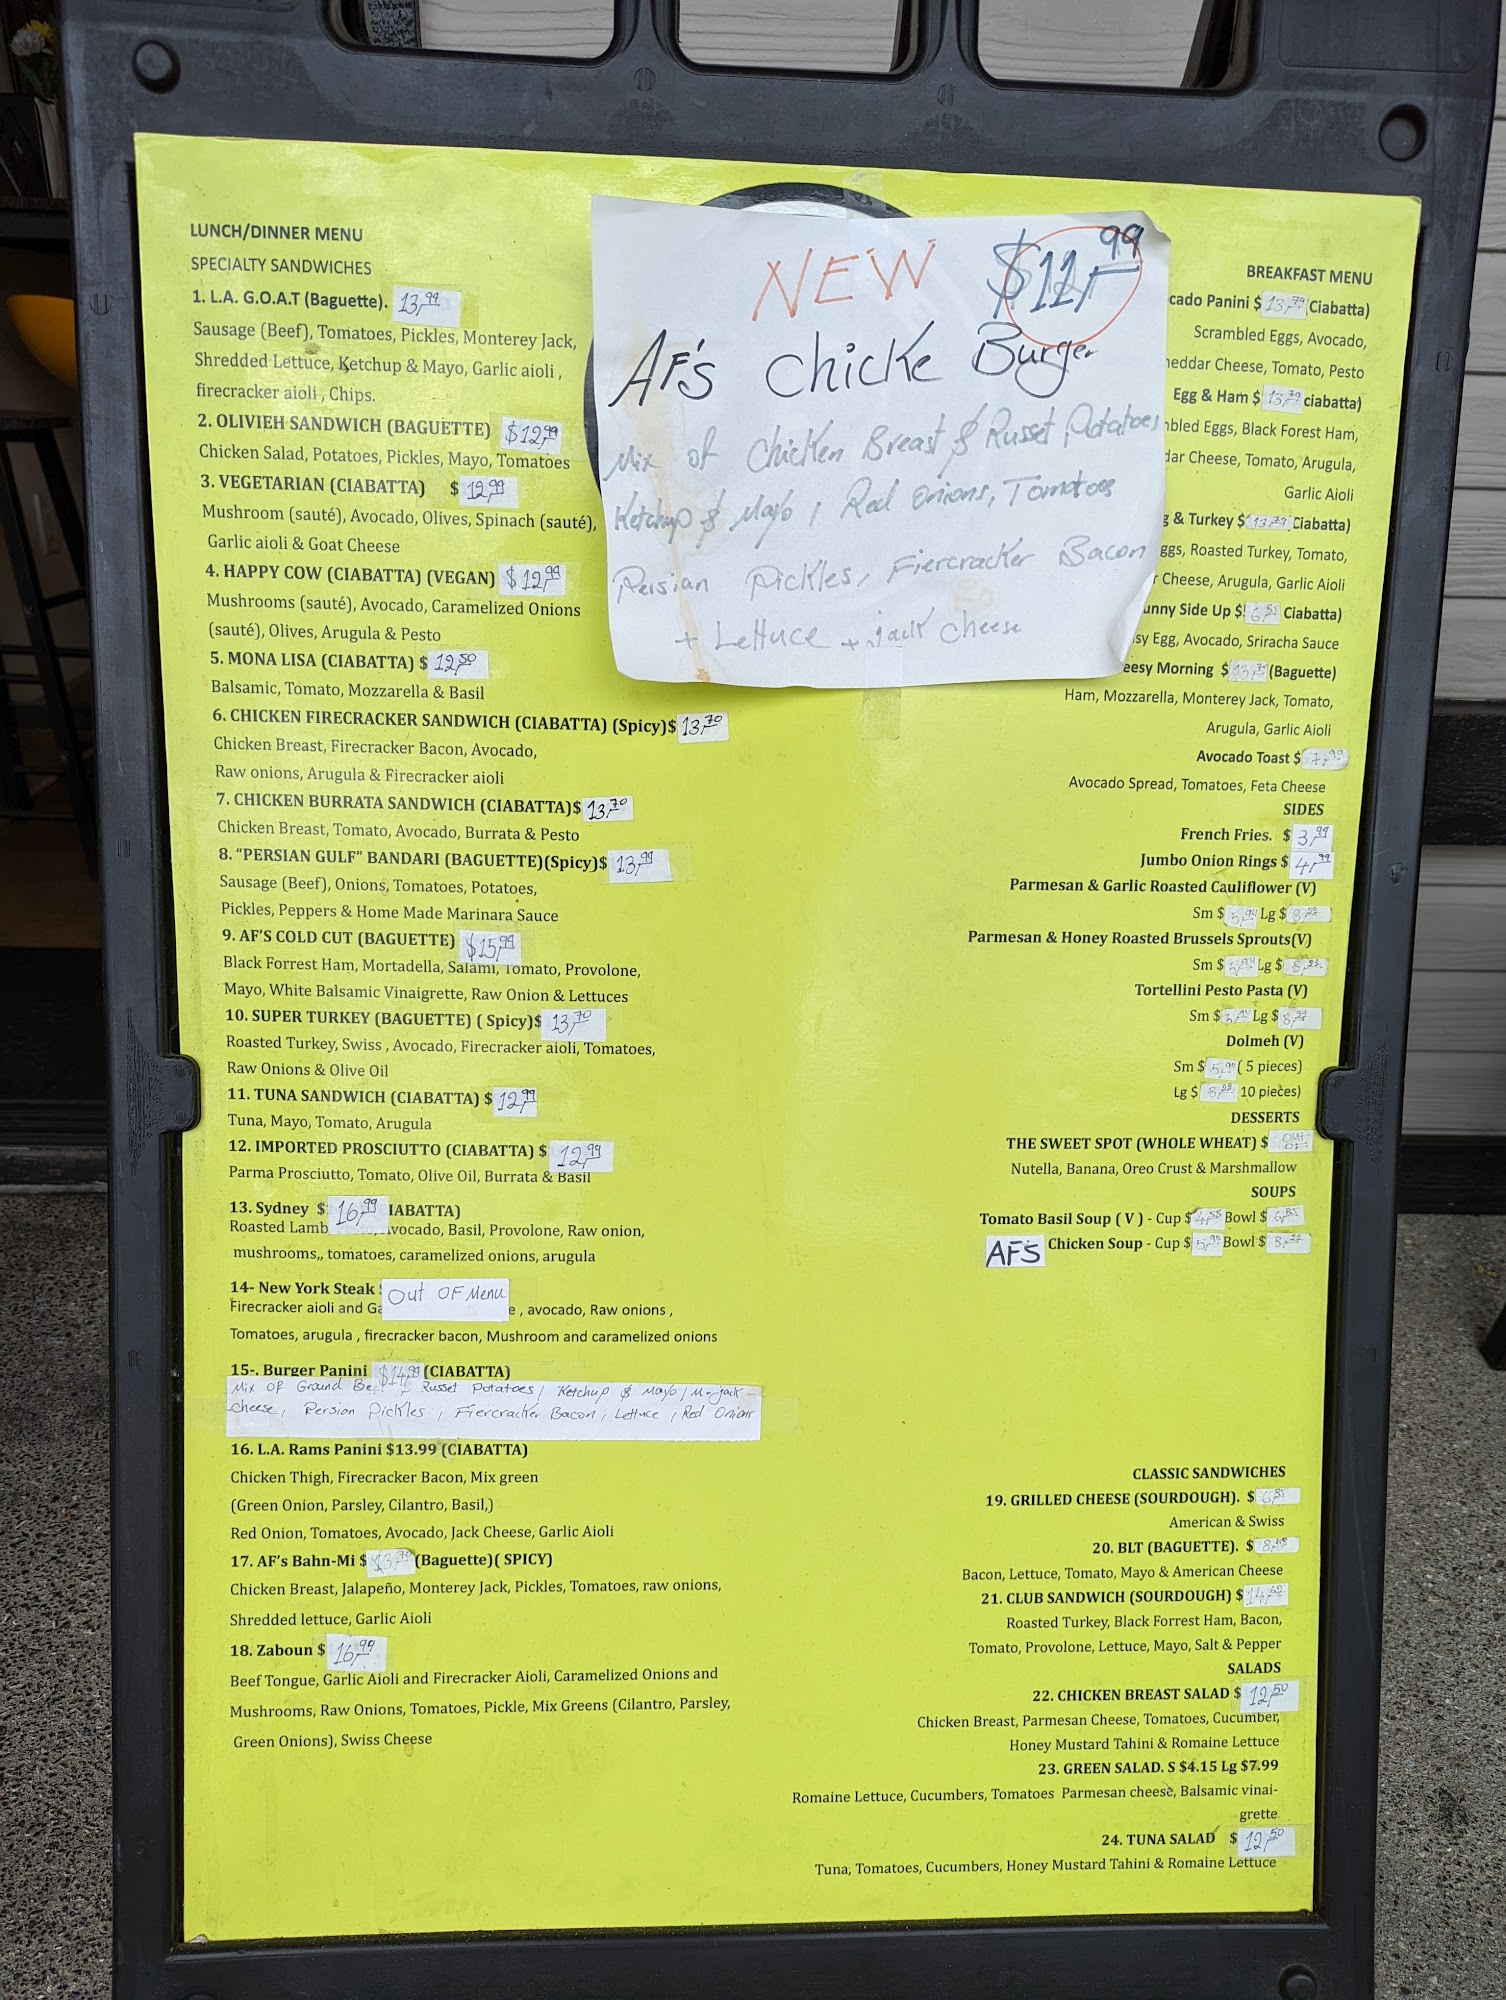 LUNCH/DINNER MENU
SPECIALTY SANDWICHES
1. L.A. G.O.A.T (Baguette). 13,99
Sausage (Beef), Tomatoes, Pickles, Monterey Jack,
Shredded Lettuce, Ketchup & Mayo, Garlic aioli ,
firecracker aioli , Chips.
2. OLIVIEH SANDWICH (BAGUETTE) $12,99
Chicken Salad, Potatoes, Pickles, Mayo, Tomatoes
3. VEGETARIAN (CIABATTA) $ 12,99
Mushroom (sauté), Avocado, Olives, Spinach (sauté),
Garlic aioli & Goat Cheese
4. HAPPY COW (CIABATTA) (VEGAN) $12,99
Mushrooms (sauté), Avocado, Caramelized Onions
(sauté), Olives, Arugula & Pesto
5. MONA LISA (CIABATTA) $ 12,50
Balsamic, Tomato, Mozzarella & Basil
6. CHICKEN FIRECRACKER SANDWICH (CIABATTA) (Spicy)$ 13,70
Chicken Breast, Firecracker Bacon, Avocado,
Raw onions, Arugula & Firecracker aioli
7. CHICKEN BURRATA SANDWICH (CIABATTA)$ 13,70
Chicken Breast, Tomato, Avocado, Burrata & Pesto
8. “PERSIAN GULF” BANDARI (BAGUETTE)(Spicy)$ 13,99
Sausage (Beef), Onions, Tomatoes, Potatoes,
Pickles, Peppers & Home Made Marinara Sauce
9. AF’S COLD CUT (BAGUETTE) $15,99
Black Forrest Ham, Mortadella, Salami, Tomato, Provolone,
Mayo, White Balsamic Vinaigrette, Raw Onion & Lettuces
10. SUPER TURKEY (BAGUETTE) ( Spicy)$ 13,70
Roasted Turkey, Swiss , Avocado, Firecracker aioli, Tomatoes,
Raw Onions & Olive Oil
11. TUNA SANDWICH (CIABATTA) $ 12,99
Tuna, Mayo, Tomato, Arugula
12. IMPORTED PROSCIUTTO (CIABATTA) $ 12,99
Parma Prosciutto, Tomato, Olive Oil, Burrata & Basil
13. Sydney $ 16,99 IABATTA)
Roasted Lamb vocado, Basil, Provolone, Raw onion,
mushrooms,, tomatoes, caramelized onions, arugula
14- New York Steak Out OF Menu
Firecracker aioli and Ga e , avocado, Raw onions ,
Tomatoes, arugula , firecracker bacon, Mushroom and caramelized onions
15-. Burger Panini $14,99 (CIABATTA)
Mix OF Ground Russet Potatoes / Ketchup & Mayo / M-jack
cheese, Persian Pickles , Fiercracker Bacon, Lettuce , Red Onions
16. L.A. Rams Panini $13.99 (CIABATTA)
Chicken Thigh, Firecracker Bacon, Mix green
(Green Onion, Parsley, Cilantro, Basil,)
Red Onion, Tomatoes, Avocado, Jack Cheese, Garlic Aioli
17. AF’s Bahn-Mi $ 13,70 (Baguette)( SPICY)
Chicken Breast, Jalapeño, Monterey Jack, Pickles, Tomatoes, raw onions,
Shredded lettuce, Garlic Aioli
18. Zaboun $ 16,99
Beef Tongue, Garlic Aioli and Firecracker Aioli, Caramelized Onions and
Mushrooms, Raw Onions, Tomatoes, Pickle, Mix Greens (Cilantro, Parsley,
Green Onions), Swiss Cheese
NEW $11,99
AF's chicke Burger
Mix of Chicken Breast & Russet Potatoes
Ketchup & Mayo / Red Onions, Tomatoes
Persian Pickles, Fiercracker Bacon
+ Lettuce + jack cheese
BREAKFAST MENU
cado Panini $ 13,79 (Ciabatta)
Scrambled Eggs, Avocado,
eddar Cheese, Tomato, Pesto
Egg & Ham $ 13,79 ciabatta)
bled Eggs, Black Forest Ham,
dar Cheese, Tomato, Arugula,
Garlic Aioli
g & Turkey $ 13,79 Ciabatta)
ggs, Roasted Turkey, Tomato,
r Cheese, Arugula, Garlic Aioli
unny Side Up $ Ciabatta)
sy Egg, Avocado, Sriracha Sauce
eesy Morning $ (Baguette)
Ham, Mozzarella, Monterey Jack, Tomato,
Arugula, Garlic Aioli
Avocado Toast $ 7,99
Avocado Spread, Tomatoes, Feta Cheese
SIDES
French Fries. $ 3,99
Jumbo Onion Rings $ 4,99
Parmesan & Garlic Roasted Cauliflower (V)
Sm $ Lg $
Parmesan & Honey Roasted Brussels Sprouts(V)
Sm $ Lg $
Tortellini Pesto Pasta (V)
Sm $ Lg $
Dolmeh (V)
Sm $ ( 5 pieces)
Lg $ 10 pieces)
DESSERTS
THE SWEET SPOT (WHOLE WHEAT) $ OUT
Nutella, Banana, Oreo Crust & Marshmallow
SOUPS
Tomato Basil Soup ( V ) - Cup $ Bowl $
AF'S Chicken Soup - Cup $ Bowl $
CLASSIC SANDWICHES
19. GRILLED CHEESE (SOURDOUGH). $
American & Swiss
20. BLT (BAGUETTE). $
Bacon, Lettuce, Tomato, Mayo & American Cheese
21. CLUB SANDWICH (SOURDOUGH) $
Roasted Turkey, Black Forrest Ham, Bacon,
Tomato, Provolone, Lettuce, Mayo, Salt & Pepper
SALADS
22. CHICKEN BREAST SALAD $ 12,50
Chicken Breast, Parmesan Cheese, Tomatoes, Cucumber,
Honey Mustard Tahini & Romaine Lettuce
23. GREEN SALAD. S $4.15 Lg $7.99
Romaine Lettuce, Cucumbers, Tomatoes Parmesan cheese, Balsamic vinai-
grette
24. TUNA SALAD $ 12,50
Tuna, Tomatoes, Cucumbers, Honey Mustard Tahini & Romaine Lettuce